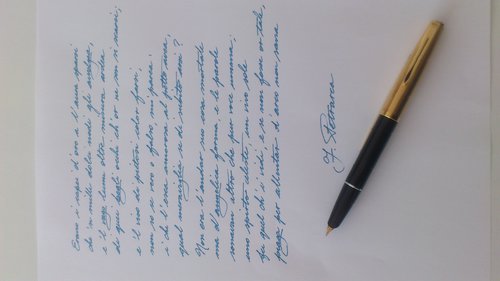 Erano i capei d'oro a l'aura sparsi
che 'n mille dolci nodi gli avolgea,
e 'l vago lume oltra misura ardea
di quei begli occhi ch'or ne son sì scarsi;
e 'l viso di pietosi color farsi,
non so se vero o falso, mi parea:
i' che l'esca amorosa al petto avea,
qual meraviglia se di subito arsi?
Non era l'andar suo cosa mortale
ma d'angelica forma, e le parole
sonavan altro che pur voce umana;
uno spirto celeste, un vivo sole
fu quel ch'i' vidi, e se non fosse or tale,
piaga per allentar d'arco non sana
F. Petrarca